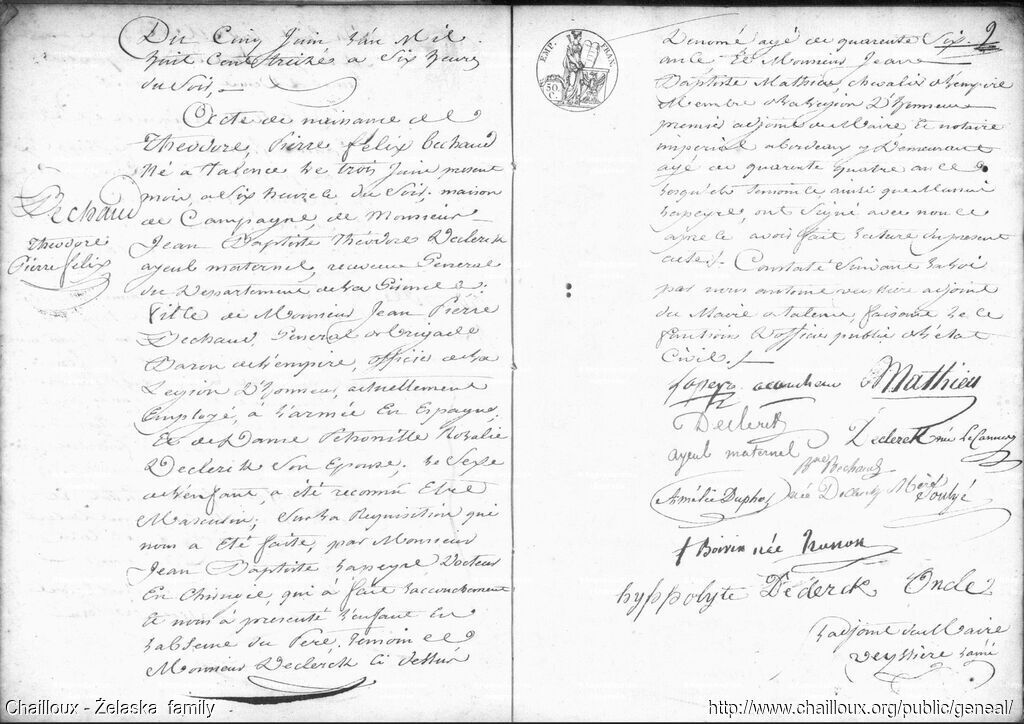 Du Cinq Juin L'an Mil
huit Cent treize a Six heures
du Soir,
Acte de naissance de
Théodore, Pierre Félix Bechaud
Né a Talence Le trois Juin present
mois, a Six heures du Soir, maison
de Campagne, de Monsieur
Jean Baptiste Théodore Declerck
ayeul maternel, receveur General
du Departement de La Gironde
fils de Monsieur Jean Pierre
Bechaud, General de Brigade
Baron de L'empire, officier de La
Legion D'honneur, actuellement
Employé, a L'armée En Espagne,
Et de Dame Petronille Rosalie
Declerck Son Epouse. Le Sexe
de L'enfant, a été reconnu Etre
Masculin; Sur La Requisition qui
nous a Eté faite, par Monsieur
Jean Baptiste Lapeyre, Docteur
En Chirurgie, qui a fait L'accouchement
Et nous a presenté L'enfant En
L'absence du Pere. temoin
Monsieur Declerck Ci dessus
Bechaud
Théodore
Pierre félix
EMP. FRAN.
50 C.
9
Denomé agé de quarente Six
ans Et Monsieur Jean
Baptiste Mathieu, chevalier de L'empire
Membre de La Legion D'honneur
premier adjoint du Maire Et notaire
imperial a Bordeaux y Demeurant
agé de quarente quatre ans
Lesquels temoins ainsi que Monsieur
Lapeyre, ont Signé avec nous
après avoir fait Lecture du present
acte. Constaté Suivant La Loi
par nous antoine veyssiere adjoint
du Maire de Talence, faisant
fonctions D'officier public de L'état
Civil.
Lapeyre accoucheur Mathieu
Declerck
ayeul maternel
Declerck née LeCanu
Bne Bechaud
née Declerck
Amélie Duphot
Boirin née
hyppolyte Declerck Oncle
L'adjoint du Maire
Veyssiere L'ainé
Chailloux - Żelaska family
http://www.chailloux.org/public/geneal/